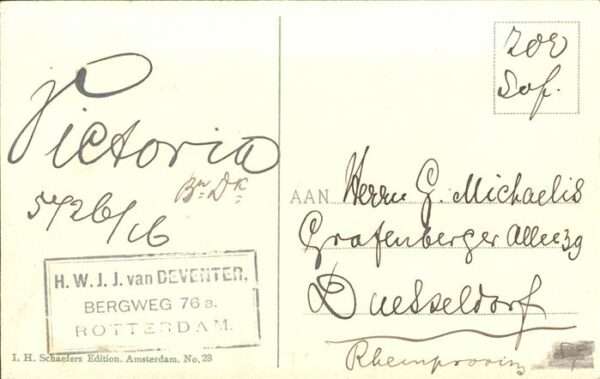 Victoria
Bn Dk
5726/16
H. W. J. J. van DEVENTER,
BERGWEG 76 a.
ROTTERDAM.
I. H. Schaefers Edition. Amsterdam. No. 29
AAN Herrn G. Michaelis
Grafenberger Allee 39
Duesseldorf
Rheinprovinz